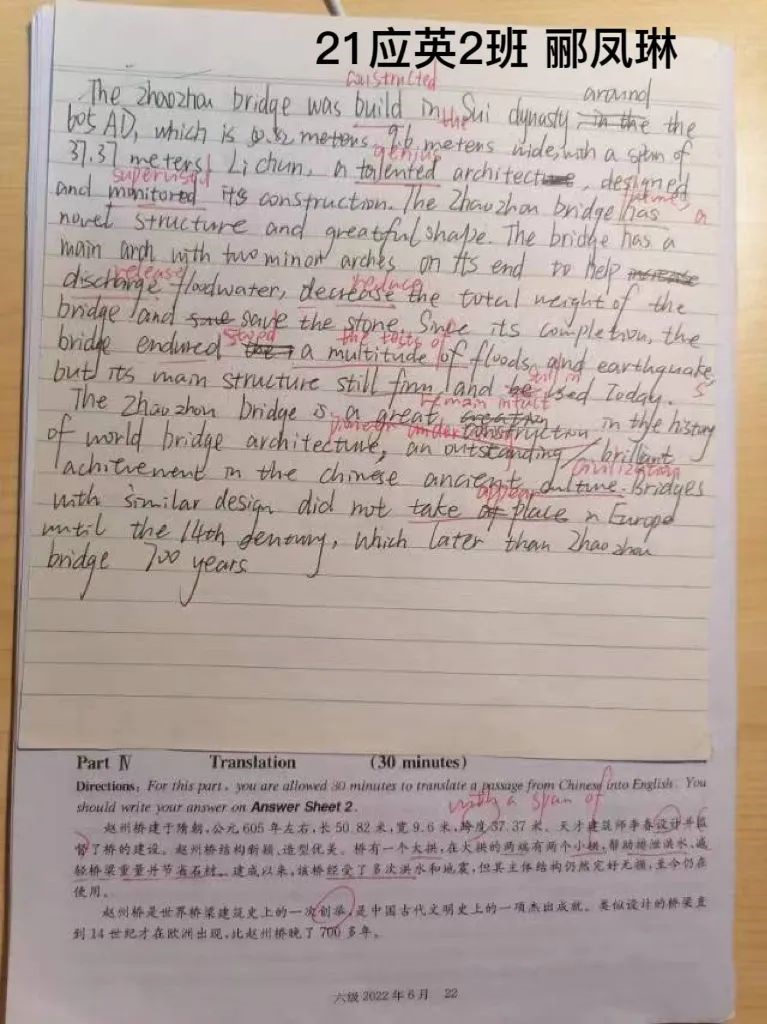 21应英2班 郦凤琳
constructed
around
The Zhaozhou bridge was build in the Sui dynasty in the the
605 AD, which is 50.82 meters 9.6 meters wide, with a span of
genius
37.37 meters. Li chun, a talented architecture, designed
supervised
and monitored its construction. The Zhaozhou bridge has a
novel structure and greatful shape. The bridge has a
main arch with two minor arches on its end to help increase
release reduce
discharge floodwater, decrease the total weight of the
bridge and save save the stone. Since its completion, the
stood the tests of
bridge endured a multitude of floods and earthquakes,
still in
but its main structure still firm and be used Today.
remain intact
The Zhaozhou bridge is a great creation construction in the history
of world bridge architecture, an outstanding / brilliant
civilization
achievement in the chinese ancient culture. Bridges
appear
with similar design did not take of place in Europe
until the 14th century, which later than Zhaozhou
bridge 700 years.
Part Ⅳ Translation (30 minutes)
Directions: For this part, you are allowed 30 minutes to translate a passage from Chinese into English. You
should write your answer on Answer Sheet 2.
with a span of
赵州桥建于隋朝,公元 605 年左右,长 50.82 米,宽 9.6 米,跨度 37.37 米。天才建筑师李春设计并监
督了桥的建设。赵州桥结构新颖、造型优美。桥有一个大拱,在大拱的两端有两个小拱,帮助排泄洪水、减
轻桥梁重量并节省石材。建成以来,该桥经受了多次洪水和地震,但其主体结构仍然完好无损,至今仍在
使用。
赵州桥是世界桥梁建筑史上的一次创举,是中国古代文明史上的一项杰出成就。类似设计的桥梁直
到 14 世纪才在欧洲出现,比赵州桥晚了 700 多年。
六级 2022 年 6 月 22